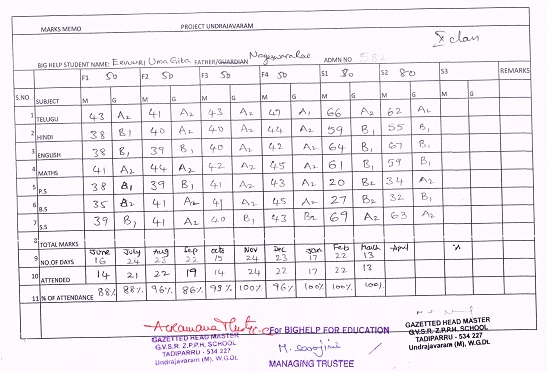 MARKS MEMO PROJECT UNDRAJAVARAM
X class
BIG HELP STUDENT NAME: Uma Gita FATHER/GUARDIAN Nageswarao ADMN NO 582
F1 50 F2 50 F3 50 F4 50 S1 80 S2 80 S3 REMARKS
S.NO SUBJECT M G M G M G M G M G M G M G
1 TELUGU 43 A2 41 A2 43 A2 47 A1 66 A2 62 A2
2 HINDI 38 B1 40 A2 40 A2 44 A2 59 B1 55 B1
3 ENGLISH 38 B1 39 B1 40 A2 42 A2 64 B1 67 B1
4 MATHS 41 A2 44 A2 42 A2 45 A2 61 B1 59 B1
5 P.S 38 B1 39 B1 41 A2 43 A2 20 B2 34 A2
6 B.S 35 B2 41 A2 41 A2 45 A2 27 B2 32 B1
7 S.S 39 B1 41 A2 40 B1 43 B2 69 A2 63 A2
8 TOTAL MARKS
June July Aug Sep Oct Nov Dec Jan Feb March April %
9 NO.OF DAYS 16 24 23 22 15 24 23 17 22 13
10 ATTENDED 14 21 22 19 14 24 22 17 22 13
11 % OF ATTENDANCE 88% 88% 96% 86% 93% 100% 96% 100% 100% 100%
For BIGHELP FOR EDUCATION
GAZETTED HEAD MASTER
G.V.S.R. Z.P.P.H. SCHOOL
TADIPARRU - 534 227
Undrajavaram (M), W.G.Dt.
M. Sarojini
MANAGING TRUSTEE
GAZETTED HEAD MASTER
G.V.S.R. Z.P.P.H. SCHOOL
TADIPARRU - 534 227
Undrajavaram (M), W.G.Dt.